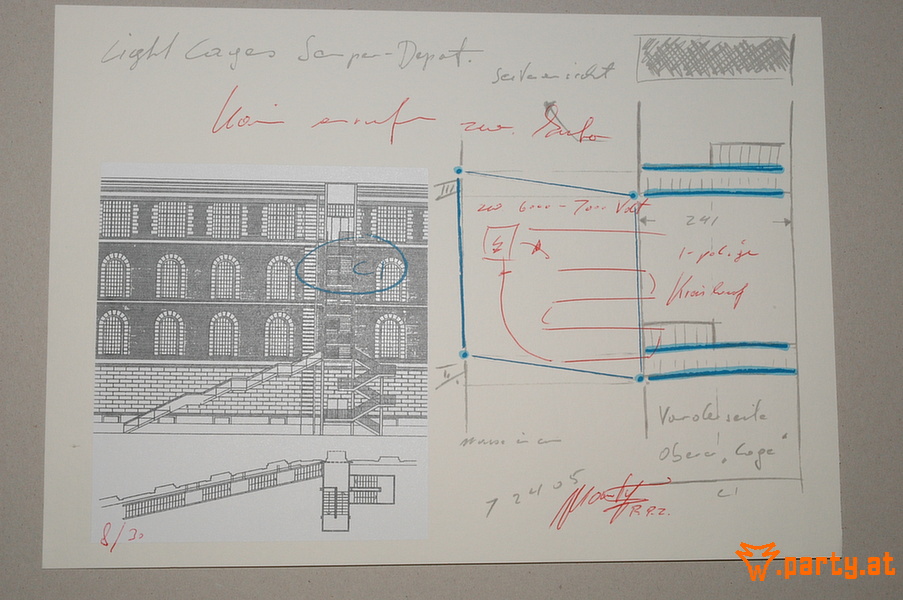 Light Cages Semper-Depot.
Seitenansicht
Kein
zur
III
zw 6000 - 7000 Volt
241
1-polige
Kreislauf
Vorderseite
Oberer "Cage"
masse in cm
7 24 05
R.P.Z.
8/30
.party.at